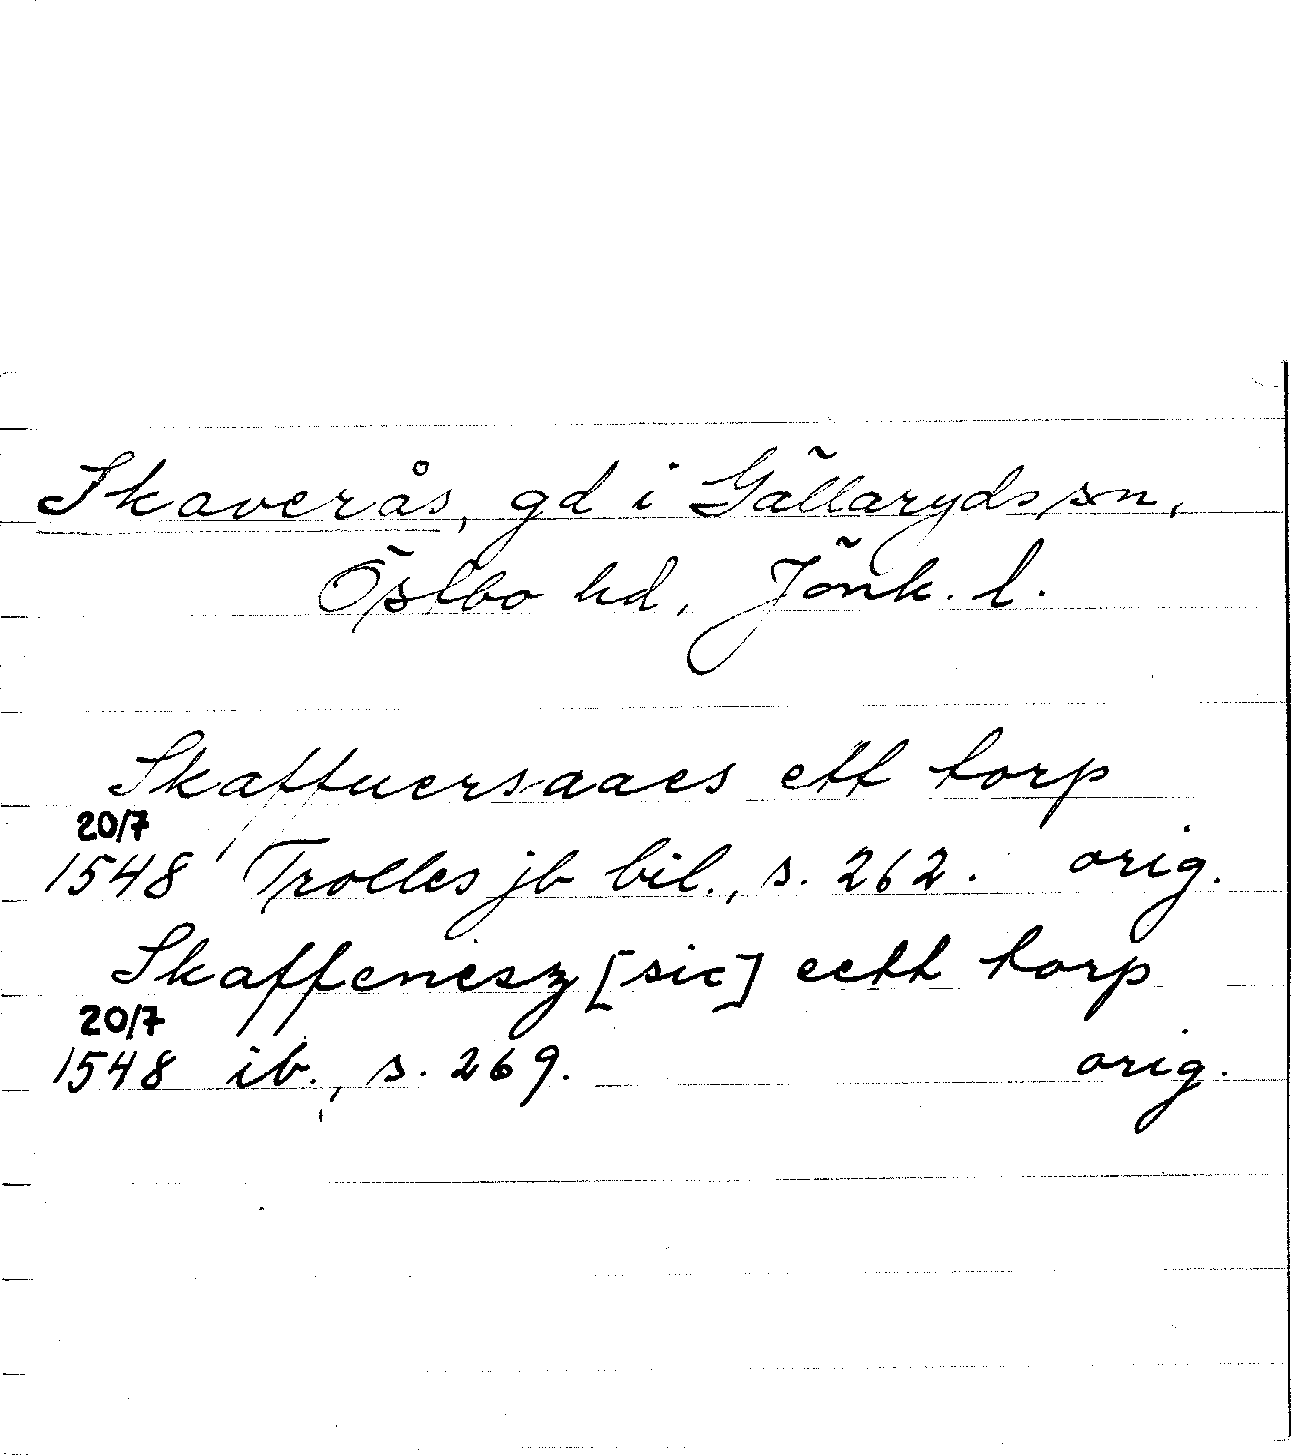 Skaverås, gd i Gällaryds sn,
Östbo hd, Jönk. l.
Skaffuersaaes ett torp
20/7
1548 Trolles jb bil., s. 262. orig.
Skaffenesz [sic] eett torp
20/7
1548 ib., s. 269. orig.